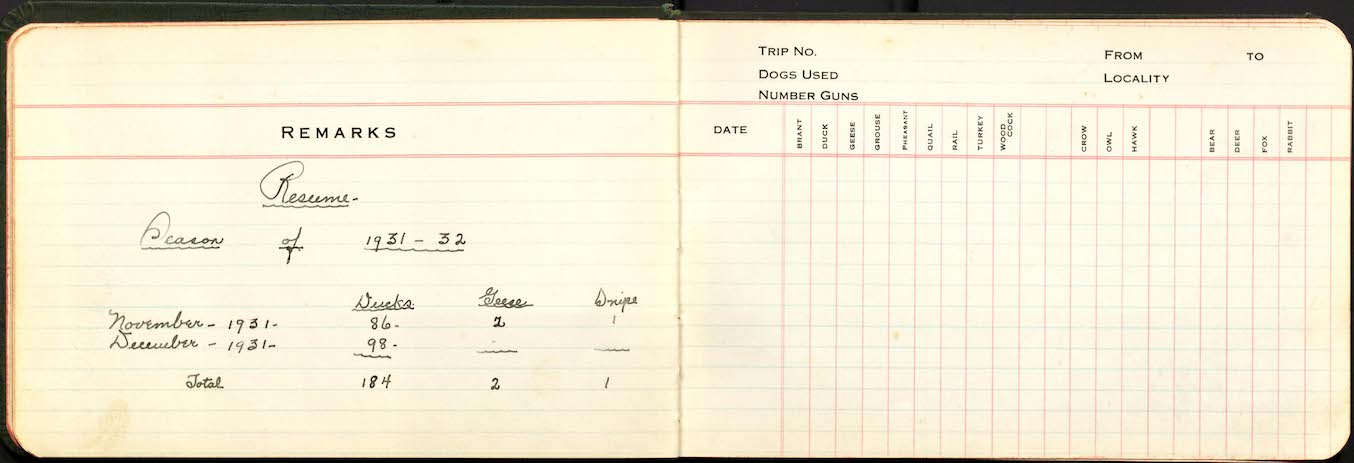 REMARKS
Resume-
Season of 1931 - 32
Ducks Geese Snipe
November - 1931- 86- 2 1
December - 1931- 98-
Total 184 2 1
TRIP NO. FROM TO
DOGS USED LOCALITY
NUMBER GUNS
DATE BRANT DUCK GEESE GROUSE PHEASANT QUAIL RAIL TURKEY WOOD COCK CROW OWL HAWK BEAR DEER FOX RABBIT